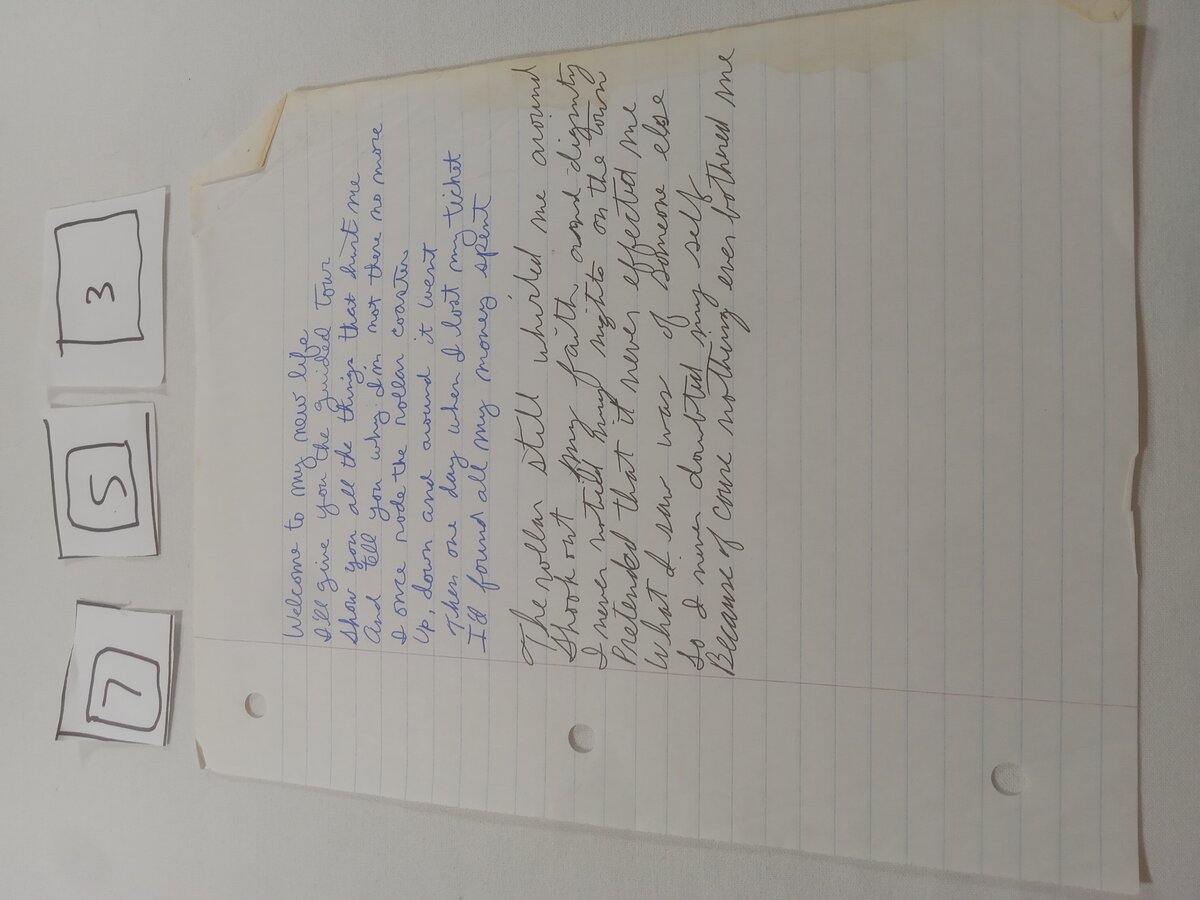 7
5
3
Welcome to my new life
I'll give you the guided tour
Show you all the things that hurt me
And tell you why I'm not there no more
I once rode the rollar coaster
Up, down and around it went
Then one day when I lost my ticket
I'd found all my money spent
The rollar still whirled me around
Shook out my faith and dignity
I never noticed my nights on the town
Pretended that it never effected me
What I saw was of someone else
So I never doubted my self
Because of course nothing ever bothered me